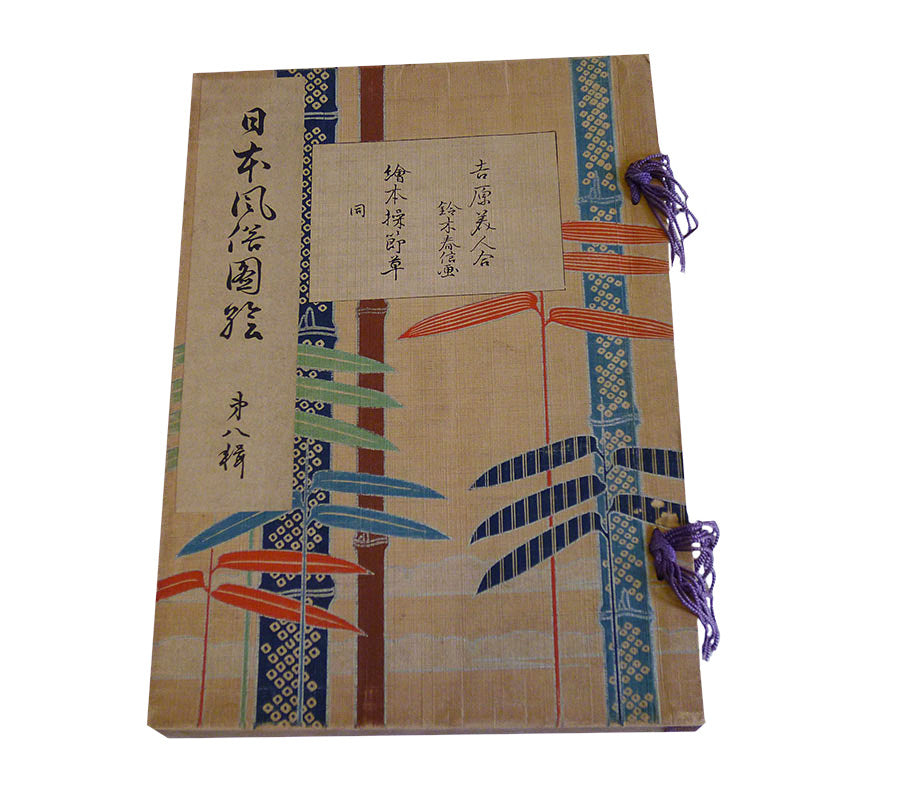 日本風俗図絵
第八輯
吉原美人合
鈴木春信画
繪本操節草
同